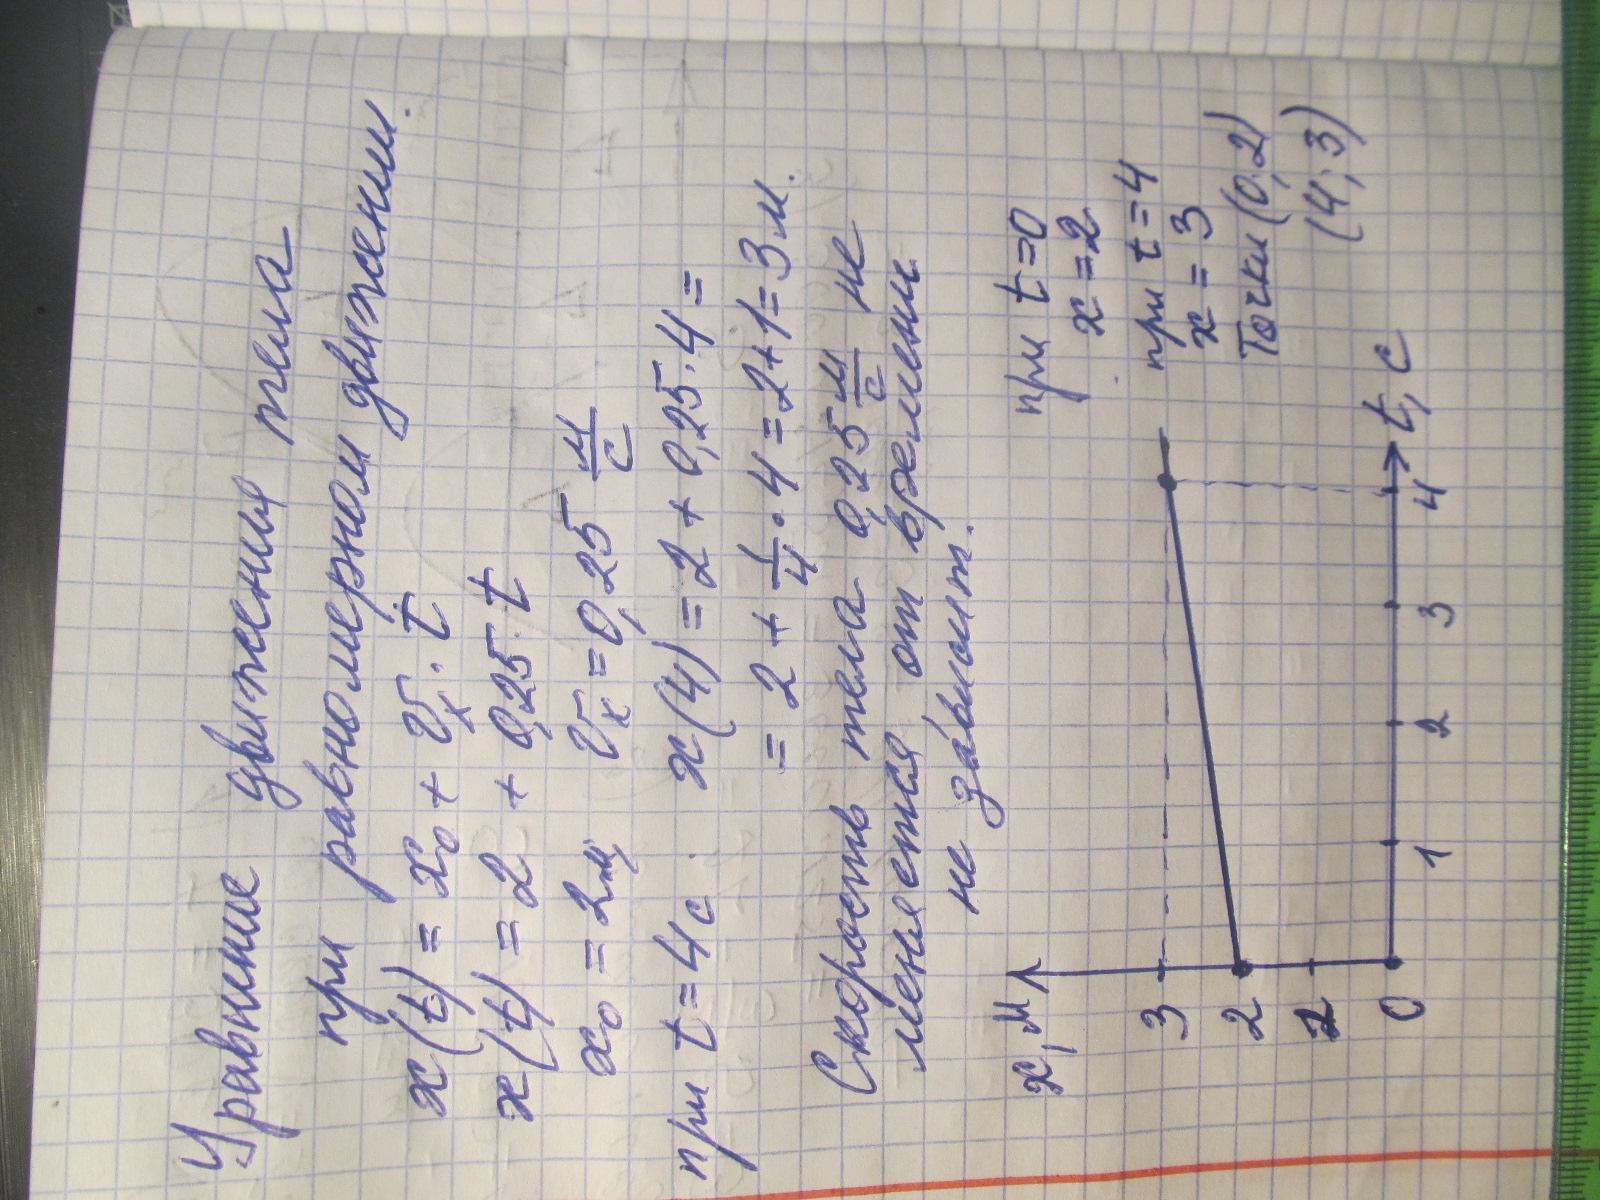 Уравнение движения тела
при равномерном движении.
x(t) = x₀ + v_x · t
x(t) = 2 + 0,25 · t
x₀ = 2м, v_x = 0,25 м/с
при t = 4 c x(4) = 2 + 0,25 · 4 =
= 2 + 1/4 · 4 = 2+1=3 м.
Скорость тела 0,25 м/с не
меняется от времени
не зависит.
при t=0
x=2
при t=4
x=3
Точки (0,2)
(4,3)
x, м
3
2
1
0
1 2 3 4 t, c